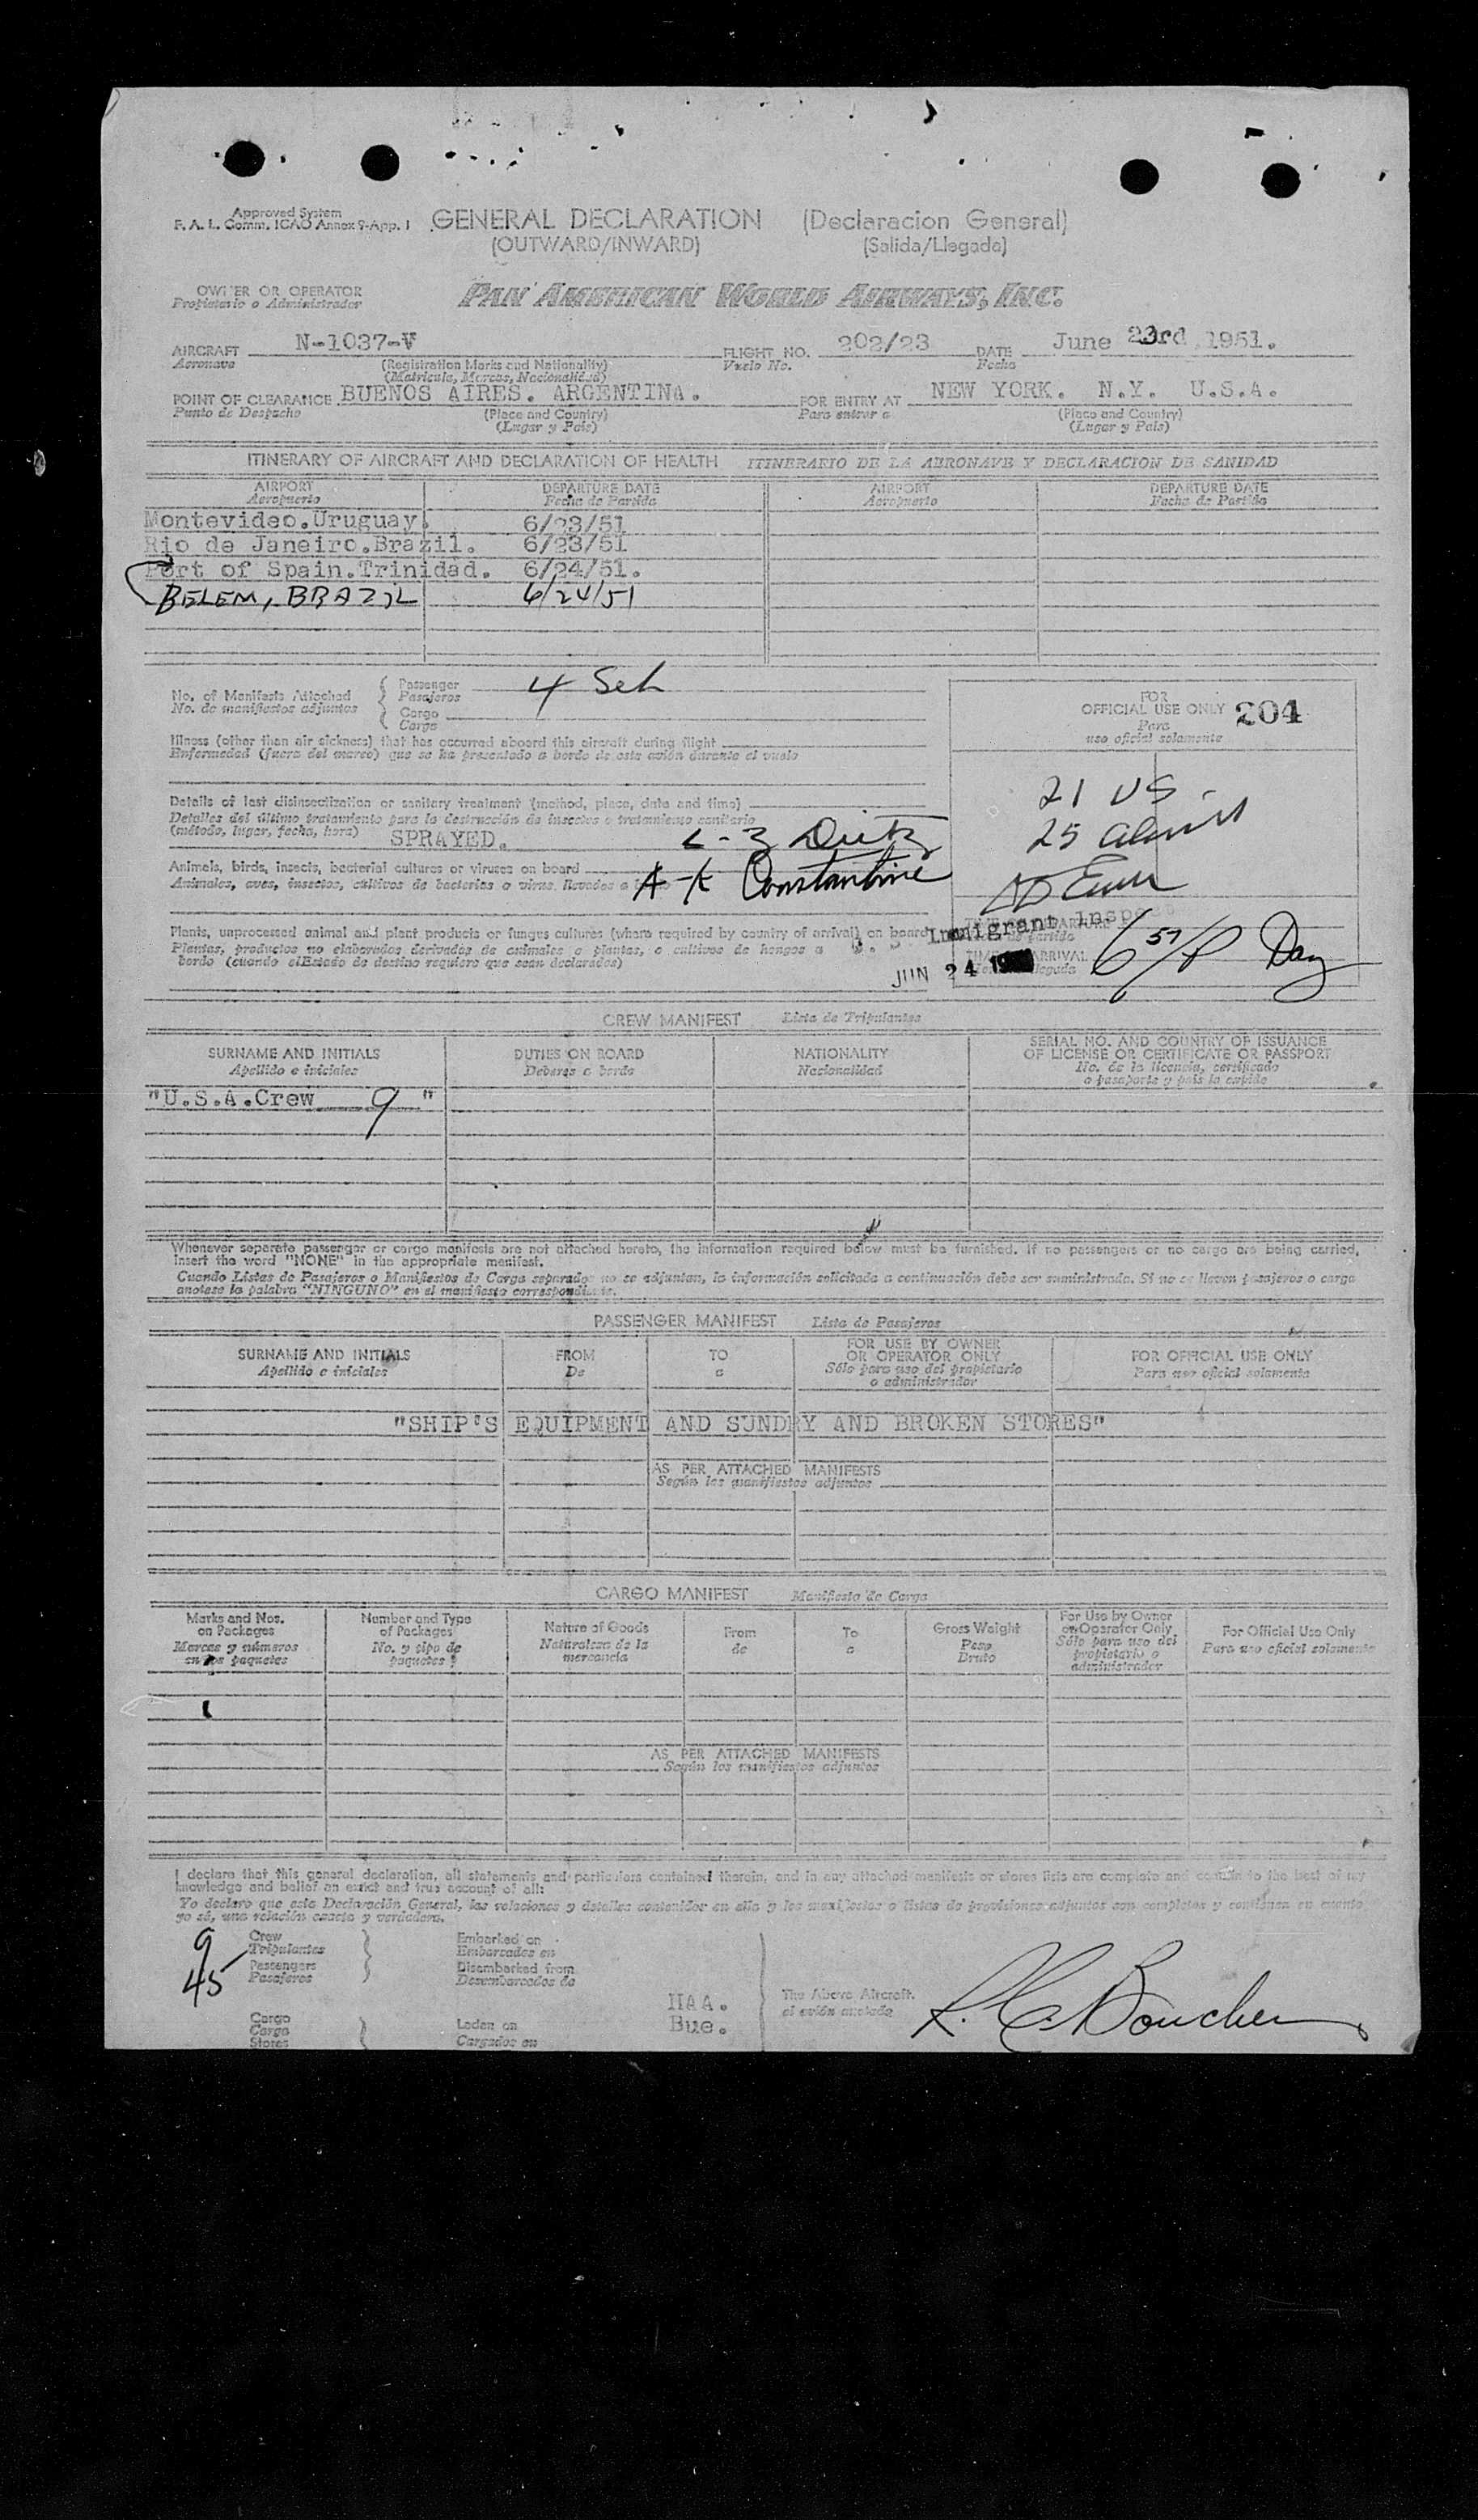 Approved System
F. A. L. Comm. ICAO Annex 9-App. I
GENERAL DECLARATION (Declaracion General)
(OUTWARD/INWARD) (Salida/Llegada)
OWNER OR OPERATOR
Propietario o Administrador
PAN AMERICAN WORLD AIRWAYS, INC.
AIRCRAFT N-1037-V FLIGHT NO. 202/23 DATE June 23rd, 1951.
Aeronave (Registration Marks and Nationality) Vuelo No. Fecha
(Matricula, Marcas, Nacionalidad)
POINT OF CLEARANCE BUENOS AIRES. ARGENTINA. FOR ENTRY AT NEW YORK. N.Y. U.S.A.
Punto de Despacho (Place and Country) Para entrar a (Place and Country)
(Lugar y Pais) (Lugar y Pais)
ITINERARY OF AIRCRAFT AND DECLARATION OF HEALTH ITINERARIO DE LA AERONAVE Y DECLARACION DE SANIDAD
AIRPORT DEPARTURE DATE AIRPORT DEPARTURE DATE
Aeropuerto Fecha de Partida Aeropuerto Fecha de Partida
Montevideo.Uruguay. 6/23/51
Rio de Janeiro.Brazil. 6/23/51
Port of Spain.Trinidad. 6/24/51.
BELEM, BRAZIL 6/24/51
No. of Manifests Attached
No. de manifiestos adjuntos
Passenger
Pasajeros
4 Set
Cargo
Carga
FOR
OFFICIAL USE ONLY 204
Para
uso oficial solamente
Illness (other than air sickness) that has occurred aboard this aircraft during flight
Enfermedad (fuera del mareo) que se ha presentado a bordo de este avión durante el vuelo
21 US
25 alien
Details of last disinsectization or sanitary treatment (method, place, date and time)
Detalles del último tratamiento para la destrucción de insectos o tratamiento sanitario
(método, lugar, fecha, hora) SPRAYED.
L-Z Dietz
Animals, birds, insects, bacterial cultures or viruses on board
Animales, aves, insectos, cultivos de bacterias o virus llevados a
A-K Constantine
Plants, unprocessed animal and plant products or fungus cultures (where required by country of arrival) on board
Plantas, productos no elaborados derivados de animales o plantas, o cultivos de hongos a
bordo (cuando el Estado de destino requiera que sean declarados)
Immigrant Inspector
JUN 24
ARRIVAL
6 57/P Day
CREW MANIFEST Lista de Tripulantes
SURNAME AND INITIALS DUTIES ON BOARD NATIONALITY SERIAL NO. AND COUNTRY OF ISSUANCE
OF LICENSE OR CERTIFICATE OR PASSPORT
Apellido e iniciales Deberes a bordo Nacionalidad No. de la licencia, certificado
o pasaporte y pais lo expide
"U.S.A.Crew 9 "
Whenever separate passenger or cargo manifests are not attached hereto, the information required below must be furnished. If no passengers or no cargo are being carried,
insert the word "NONE" in the appropriate manifest.
Cuando Listas de Pasajeros o Manifiestos de Carga separados no se adjuntan, la información solicitada a continuación debe ser suministrada. Si no se llevan pasajeros o carga
anotese la palabra "NINGUNO" en el manifiesto correspondiente.
PASSENGER MANIFEST Lista de Pasajeros
SURNAME AND INITIALS FROM TO FOR USE BY OWNER
OR OPERATOR ONLY FOR OFFICIAL USE ONLY
Apellido e iniciales De a Sólo para uso del propietario
o administrador Para uso oficial solamente
"SHIP'S EQUIPMENT AND SUNDRY AND BROKEN STORES"
AS PER ATTACHED MANIFESTS
Según los manifiestos adjuntos
CARGO MANIFEST Manifiesto de Carga
Marks and Nos.
on Packages
Marcas y números
en los paquetes
Number and Type
of Packages
No. y tipo de
paquetes
Nature of Goods
Naturaleza de la
mercancia
From
de
To
a
Gross Weight
Peso
Bruto
For Use by Owner
or Operator Only
Sólo para uso del
propietario o
administrador
For Official Use Only
Para uso oficial solamente
AS PER ATTACHED MANIFESTS
Según los manifiestos adjuntos
I declare that this general declaration, all statements and particulars contained therein, and in any attached manifests or stores lists are complete and contain to the best of my
knowledge and belief an exact and true account of all:
Yo declaro que esta Declaración General, las relaciones y detalles contenidos en ella y los manifiestos o listas de provisiones adjuntos son completos y contienen en cuanto
yo sé, una relación exacta y verdadera.
9 Crew
Tripulantes
45 Passengers
Pasajeros
Embarked on
Embarcados en
Disembarked from
Desembarcados de
Cargo
Carga
Stores
Laden on
Cargados en
Bue.
The Above Aircraft.
el avión anotado
Boucher